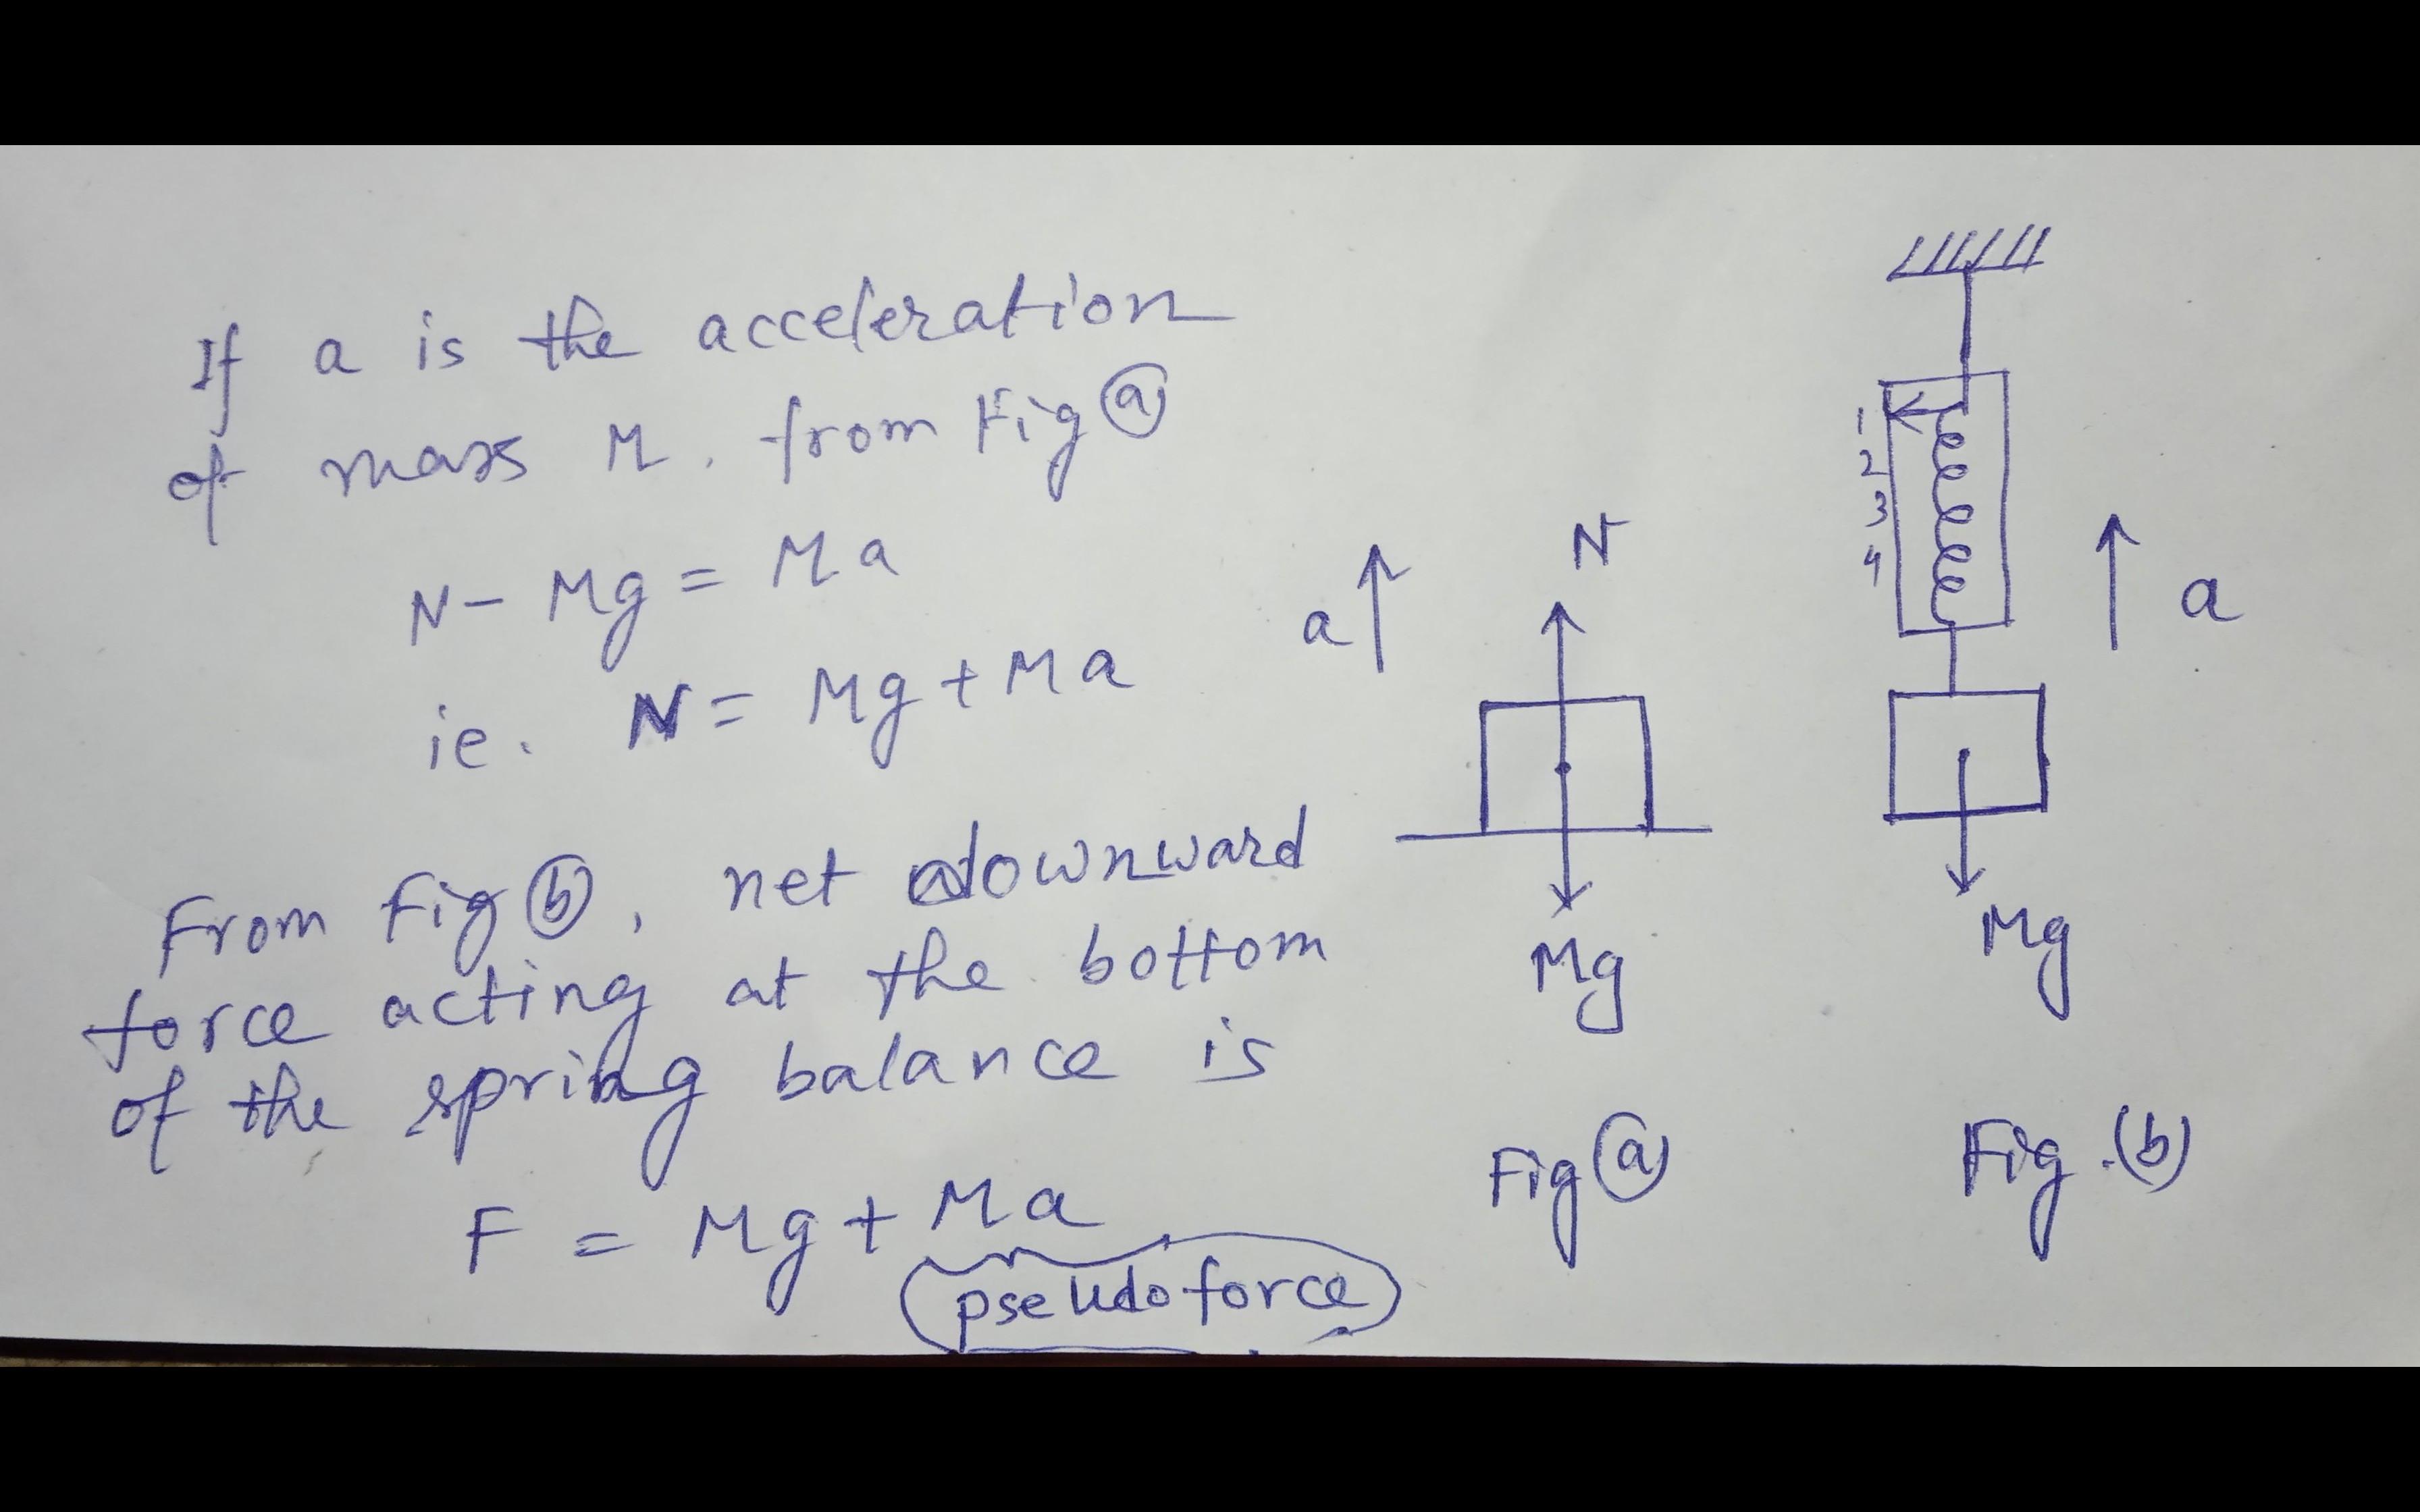 If a is the acceleration
of mass M. from Fig (a)
N - Mg = Ma
ie. N = Mg + Ma
From Fig (b), net downward
force acting at the bottom
of the spring balance is
F = Mg + Ma
pseudo force
a
N
Mg
Fig (a)
1
2
3
4
a
Mg
Fig. (b)